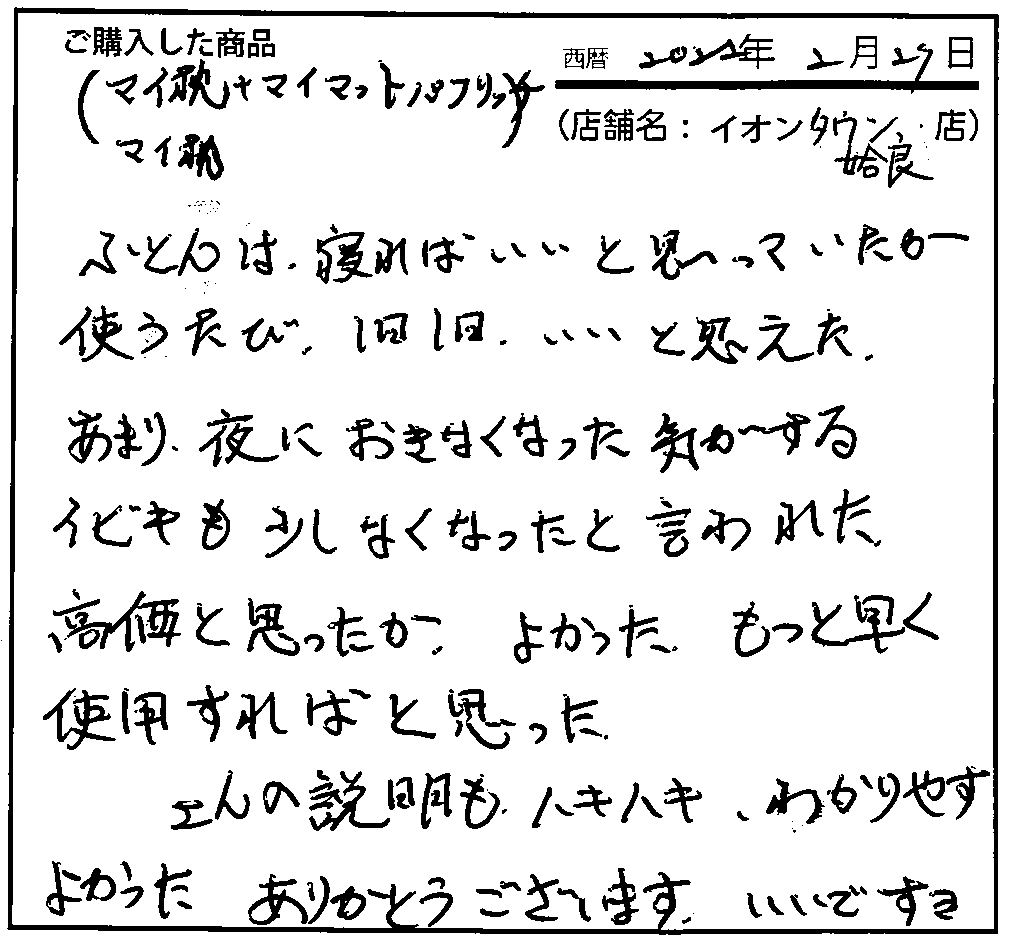 ご購入した商品
西暦 2022年 2月27日
(マイ枕+マイマットパフリッチ)
マイ枕
(店舗名:イオンタウン 店)
姶良
ふとんは、寝ればいいと思っていたが
使うたび、1回1回、いいと思えた。
あまり、夜におきなくなった気がする
イビキも少しなくなったと言われた。
高価と思ったが、よかった。もっと早く
使用すればと思った。
さんの説明も、ハキハキ、わかりやす
よかった ありがとうございます。いいですヨ